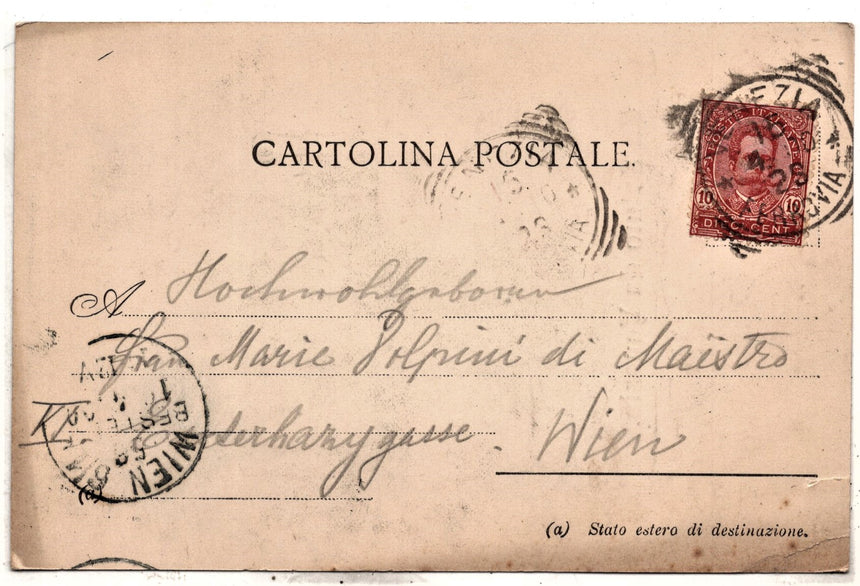 CARTOLINA POSTALE.
VENEZIA
FERROVIA
POSTE ITALIANE
10 10
DIECI CENT
A Hochwohlgeboren
Frau Marie Volpini di Maëstro
VI Esterhazygasse. Wien
WIEN
BESTELLT
(a)
(a) Stato estero di destinazione.